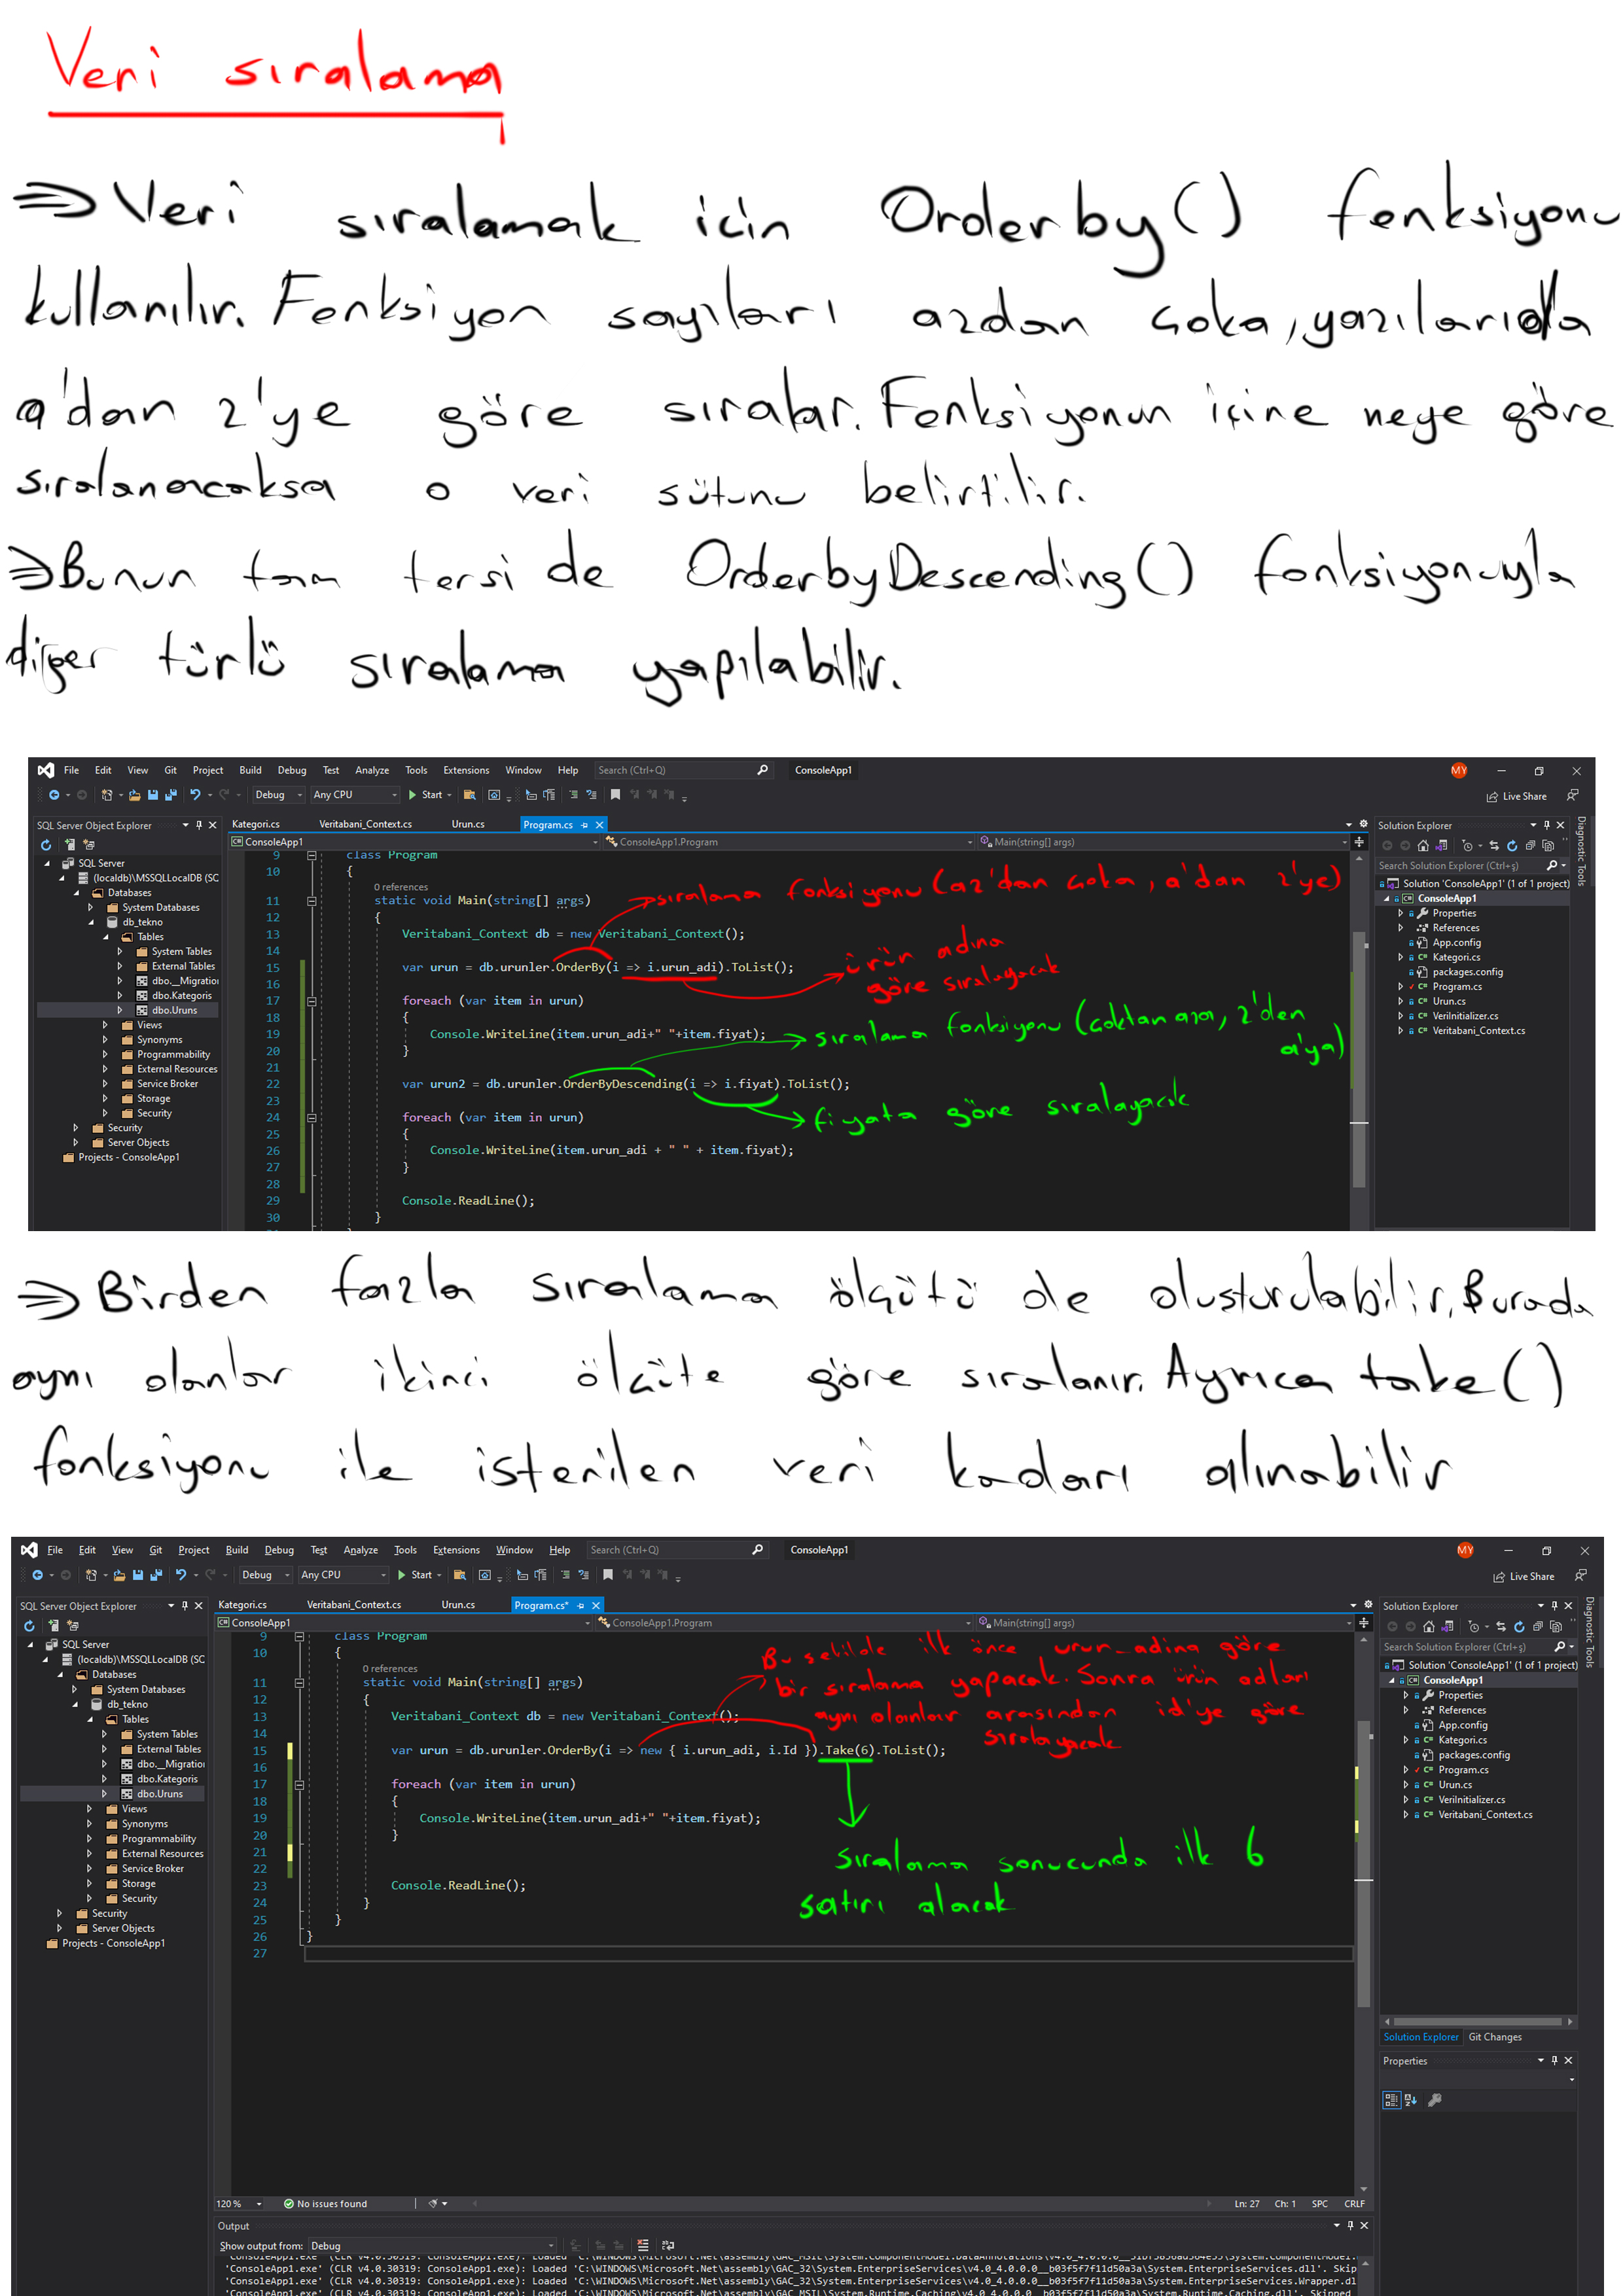 Veri sıralama
=> Veri sıralamak için Orderby() fonksiyonu
kullanılır. Fonksiyon sayıları azdan çoka, yazılarıda
a'dan z'ye göre sıralar. Fonksiyonun içine neye göre
sıralanacaksa o veri sütunu belirtilir.
=> Bunun tam tersi de OrderbyDescending() fonksiyonuyla
diğer türlü sıralama yapılabilir.
File Edit View Git Project Build Debug Test Analyze Tools Extensions Window Help Search (Ctrl+Q) ConsoleApp1 MY
Debug Any CPU Start Live Share
SQL Server Object Explorer
SQL Server
(localdb)\MSSQLLocalDB (SC
Databases
System Databases
db_tekno
Tables
System Tables
External Tables
dbo.__Migration
dbo.Kategoris
dbo.Uruns
Views
Synonyms
Programmability
External Resources
Service Broker
Storage
Security
Security
Server Objects
Projects - ConsoleApp1
Kategori.cs Veritabani_Context.cs Urun.cs Program.cs
ConsoleApp1 ConsoleApp1.Program Main(string[] args)
9 class Program
10 {
0 references
11 static void Main(string[] args)
12 {
13 Veritabani_Context db = new Veritabani_Context();
14
15 var urun = db.urunler.OrderBy(i => i.urun_adi).ToList();
16
17 foreach (var item in urun)
18 {
19 Console.WriteLine(item.urun_adi+" "+item.fiyat);
20 }
21
22 var urun2 = db.urunler.OrderByDescending(i => i.fiyat).ToList();
23
24 foreach (var item in urun)
25 {
26 Console.WriteLine(item.urun_adi + " " + item.fiyat);
27 }
28
29 Console.ReadLine();
30 }
sıralama fonksiyonu (az'dan çoka, a'dan z'ye)
ürün adına
göre sıralayacak
sıralama fonksiyonu (çoktan aza, z'den
a'ya)
fiyata göre sıralayacak
Solution Explorer
Search Solution Explorer (Ctrl+ş)
Solution 'ConsoleApp1' (1 of 1 project)
ConsoleApp1
Properties
References
App.config
Kategori.cs
packages.config
Program.cs
Urun.cs
VeriInitializer.cs
Veritabani_Context.cs
Diagnostic Tools
=> Birden fazla sıralama ölçütü de oluşturulabilir. Burada
aynı olanlar ikinci ölçüte göre sıralanır. Ayrıca take()
fonksiyonu ile istenilen veri kadarı alınabilir
File Edit View Git Project Build Debug Test Analyze Tools Extensions Window Help Search (Ctrl+Q) ConsoleApp1 MY
Debug Any CPU Start Live Share
SQL Server Object Explorer
SQL Server
(localdb)\MSSQLLocalDB (SC
Databases
System Databases
db_tekno
Tables
System Tables
External Tables
dbo.__Migration
dbo.Kategoris
dbo.Uruns
Views
Synonyms
Programmability
External Resources
Service Broker
Storage
Security
Security
Server Objects
Projects - ConsoleApp1
Kategori.cs Veritabani_Context.cs Urun.cs Program.cs*
ConsoleApp1 ConsoleApp1.Program Main(string[] args)
9 class Program
10 {
0 references
11 static void Main(string[] args)
12 {
13 Veritabani_Context db = new Veritabani_Context();
14
15 var urun = db.urunler.OrderBy(i => new { i.urun_adi, i.Id }).Take(6).ToList();
16
17 foreach (var item in urun)
18 {
19 Console.WriteLine(item.urun_adi+" "+item.fiyat);
20 }
21
22
23 Console.ReadLine();
24 }
25 }
26 }
27
Bu şekilde ilk önce urun_adina göre
bir sıralama yapacak. Sonra ürün adları
aynı olanlar arasından id'ye göre
sıralayacak
sıralama sonucunda ilk 6
satırı alacak
Solution Explorer
Search Solution Explorer (Ctrl+ş)
Solution 'ConsoleApp1' (1 of 1 project)
ConsoleApp1
Properties
References
App.config
Kategori.cs
packages.config
Program.cs
Urun.cs
VeriInitializer.cs
Veritabani_Context.cs
Diagnostic Tools
Solution Explorer Git Changes
Properties
120 % No issues found Ln: 27 Ch: 1 SPC CRLF
Output
Show output from: Debug
'ConsoleApp1.exe' (CLR v4.0.30319: ConsoleApp1.exe): Loaded 'C:\WINDOWS\Microsoft.Net\assembly\GAC_32\System.EnterpriseServices\v4.0_4.0.0.0__b03f5f7f11d50a3a\System.EnterpriseServices.dll'. Skip
'ConsoleApp1.exe' (CLR v4.0.30319: ConsoleApp1.exe): Loaded 'C:\WINDOWS\Microsoft.Net\assembly\GAC_32\System.EnterpriseServices\v4.0_4.0.0.0__b03f5f7f11d50a3a\System.EnterpriseServices.Wrapper.dl
'ConsoleApp1.exe' (CLR v4.0.30319: ConsoleApp1.exe): Loaded 'C:\WINDOWS\Microsoft.Net\assembly\GAC_MSIL\System.Runtime.Caching\v4.0_4.0.0.0__b03f5f7f11d50a3a\System.Runtime.Caching.dll'. Skipped